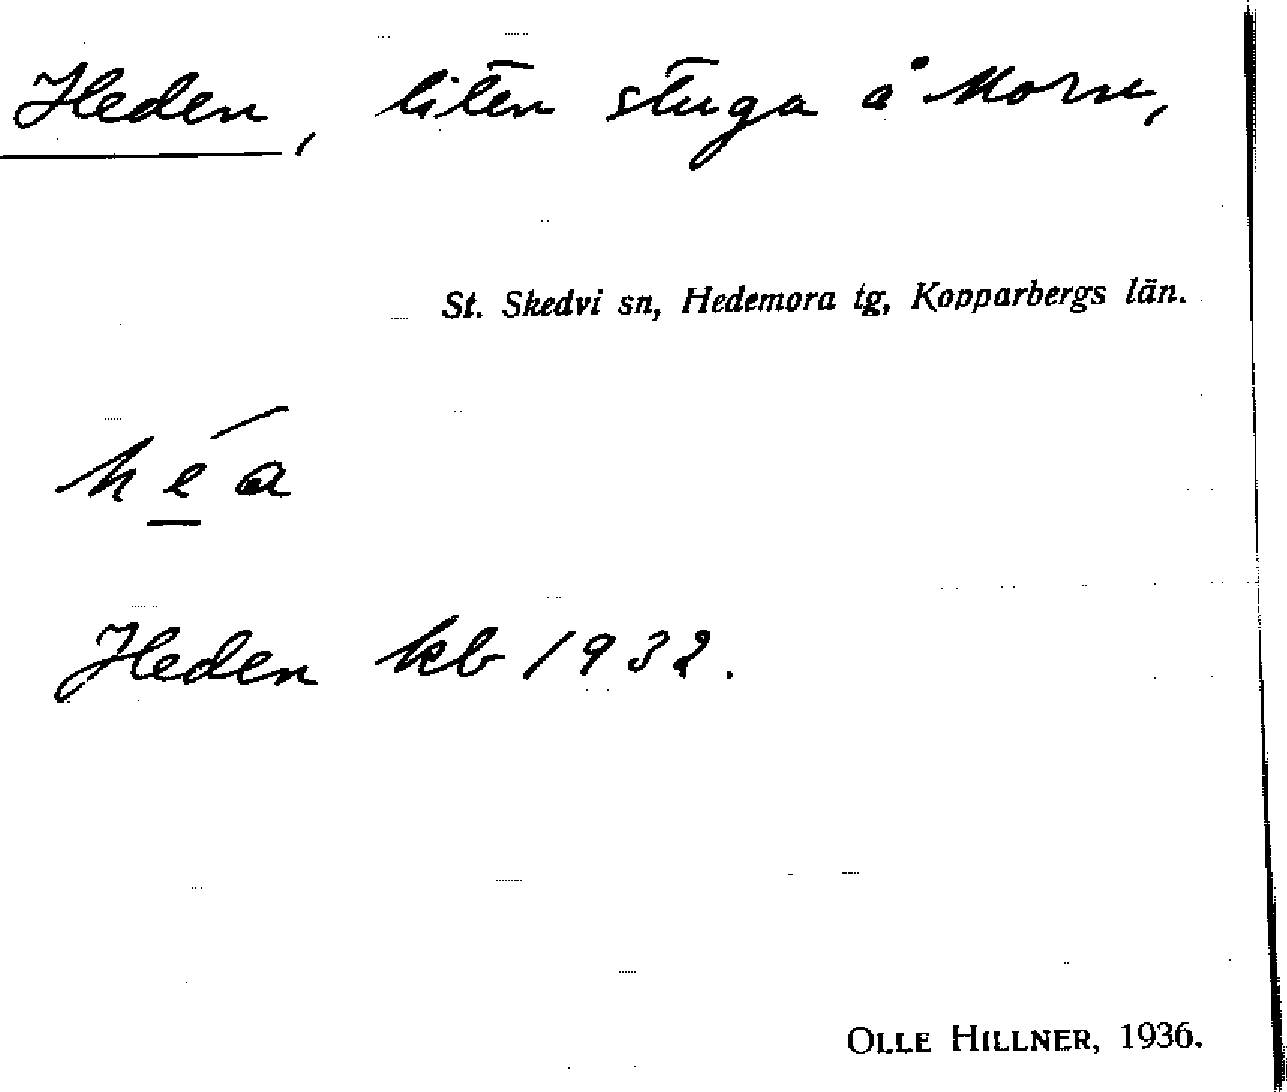 Heden, liten stuga å Morn,
St. Skedvi sn, Hedemora tg, Kopparbergs län.
héa
Heden kb 1932.
OLLE HILLNER, 1936.